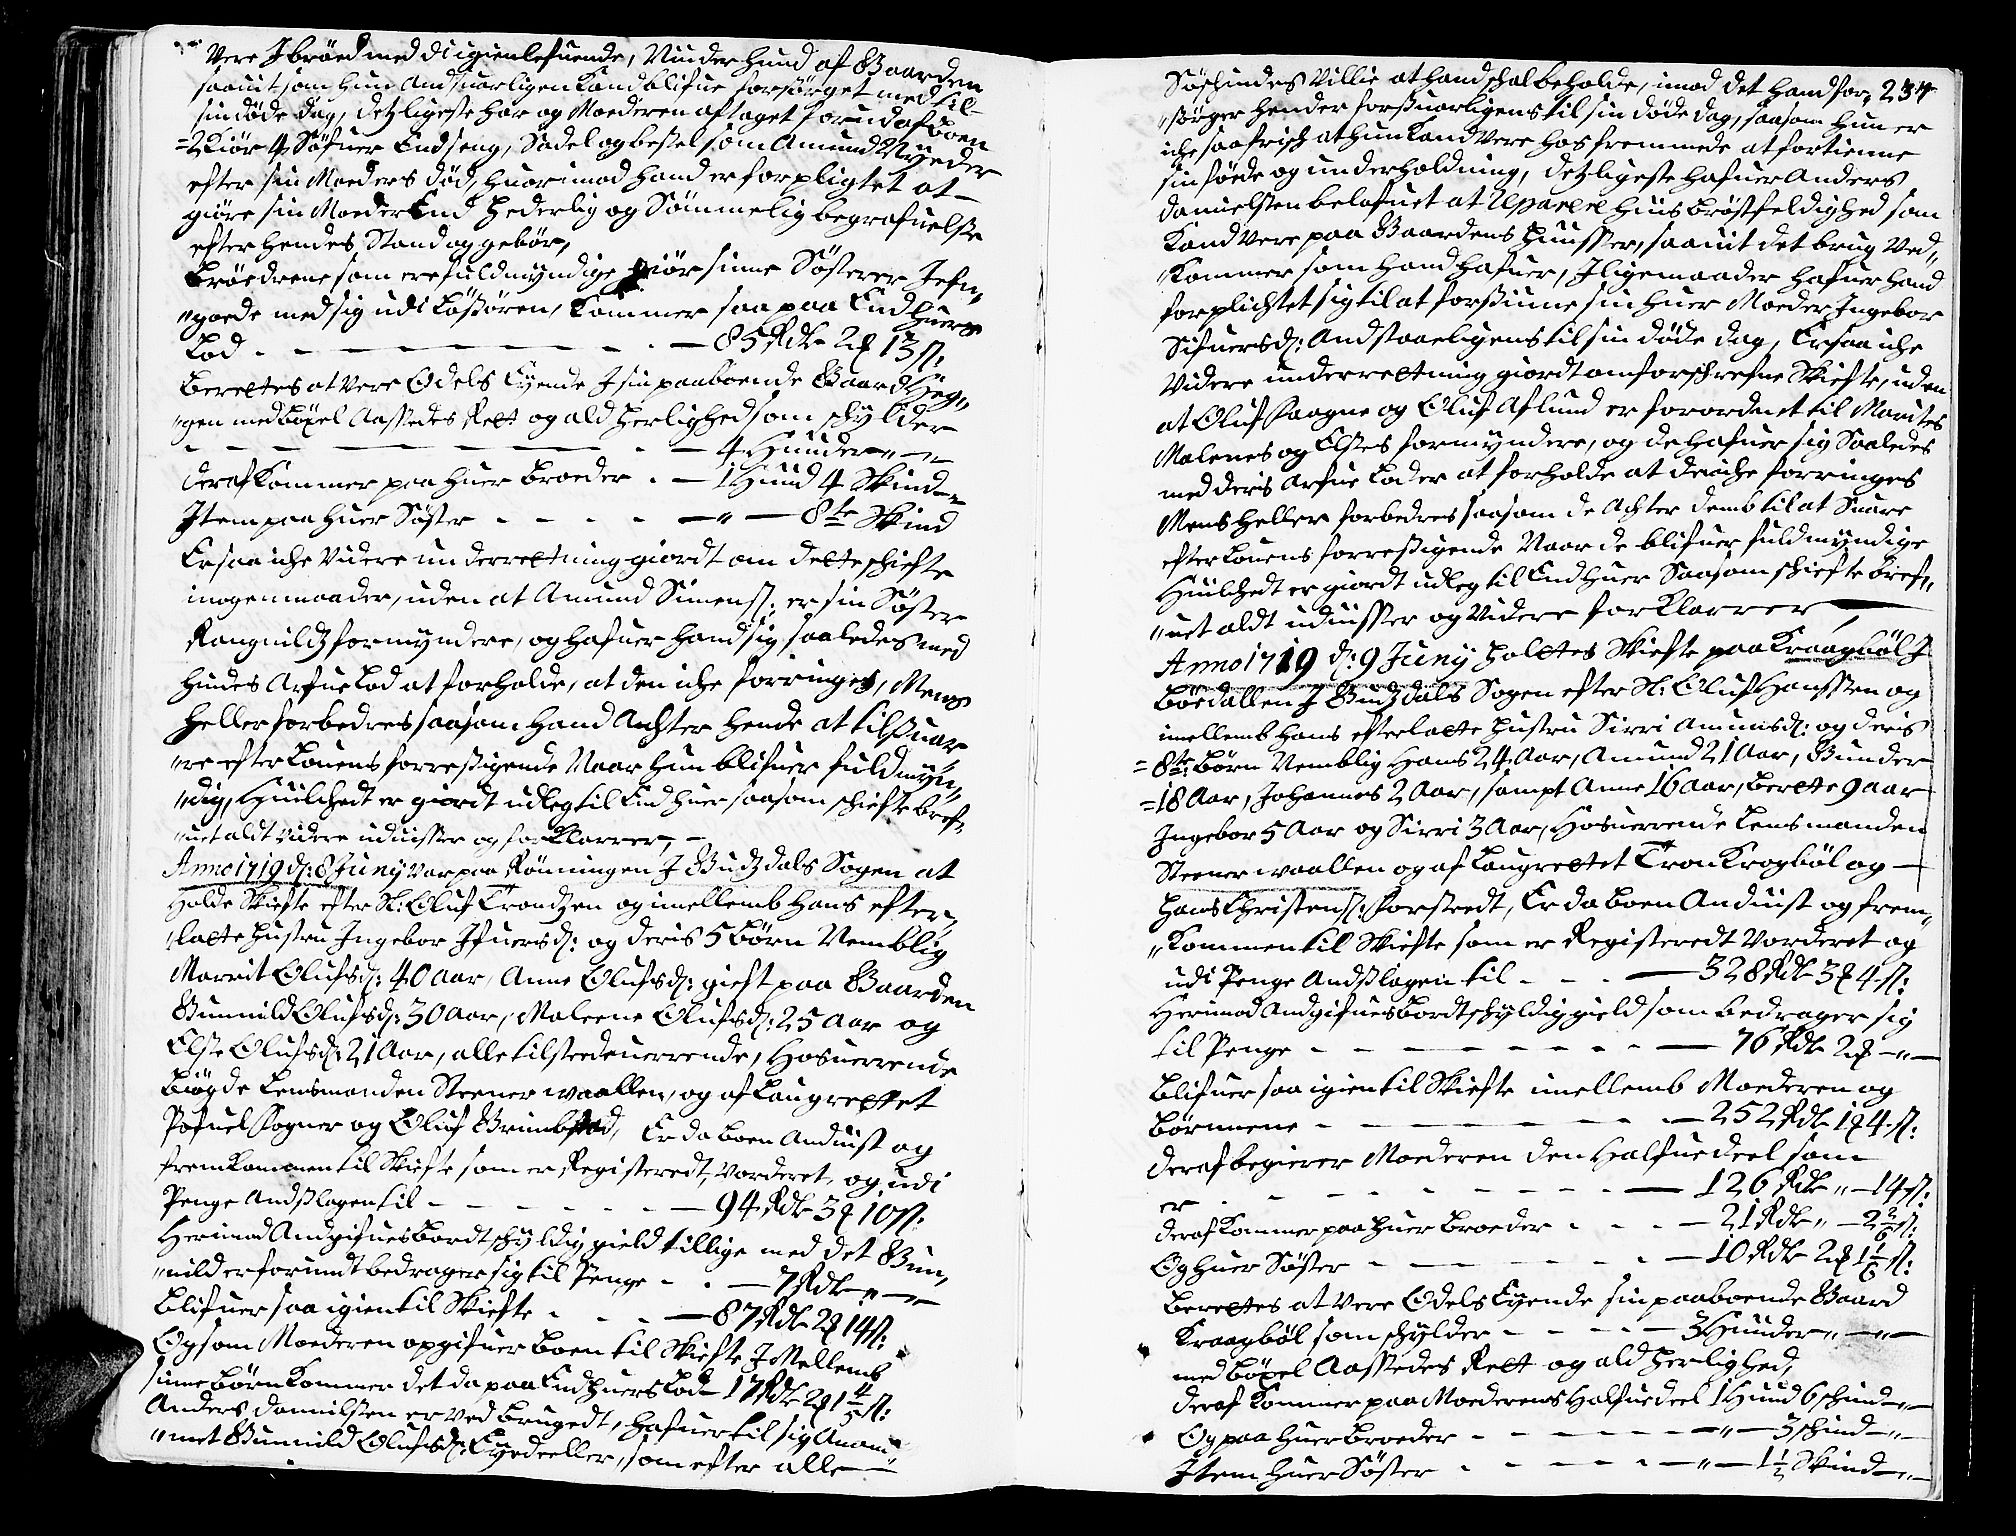 Vere J brød med di igienlefuende, Under hund af Gaarden
saauit som hun Andsuarligen Kand blifue forsørget med til
sin døde dag, detzligeste har og Moederen aftaget forud af boen
2 Kiør 4 Søfuer End seng, Sadel og bessel som Amund Nyder
efter sin Moeders død, huorimod hand er forpligtet at
giøre sin Moeder End hederlig og Sømmelig begrafuelsse
efter hendes Stand og gebør,
Brøedrene som ere fuldmyndige giør sinne Søsterer Jefn,,
,,goede med sig udi Løssøren, Kommer saa paa End huers
Lod - - - 85 Rdr 2 ℔ 13 s:
berettes at vere Odels Eyende J sin paaboende Gaard Heg,,
,,gen med bøxel Aassedes Rett og ald herlighed som schylder
- - - 4 Huuder ,, — ,,
deraf Kommer paa huer broeder . — 1 Huud 4 Skind — ,,
Jtem paa huer Søster - - - — ,, — 8te Skind
Er saa iche videre underrettning giordt om dette schiefte
i nogen maader, uden at Amund Simens: er sin Søster
Rangnildz formyndere, og hafuer hand sig saaledes med
hindes Arfue Lod at forholde, at den iche forringes, Mens
heller forbedres saasom hand Achter hende at tilsuar
,,re efter Louens forresigende Naar hun blifuer fuldmyn,,
,,dig, Huilchedt er giordt udleg til End huer saasom schiefte bref,,
,,uet aldt videre uduisser og forklarrer, —
Anno 1719 d: 8 Juny var paa Rønningen J Budzdals Sogen at
holde Skiefte efter Sl: Oluf Trondzen og imellemb hans efter,,
,,latte hustru Ingebor Jfuersd: og deris 5 børn Nemblig
Marrit Olufsd: 40 Aar, Anne Olufsd: gieft paa Gaarden
Gunnild Olufsd: 30 Aar, Maleene Olufsd: 25 Aar og
Elsse Olufsd: 21 Aar, alle tilsteedeuerrende, Hosuerrende
Biøgde Lensmanden Steener waallen, og af Laugrettet
Pofuel Sogner og Oluf Grimbstad, Er da boen Anduist og
fremkommen til Skiefte som er Registeredt, Vorderet, og udi
Penge Andslagen til - - - — 94 Rdr 3 ℔ 10 s:
Herimod Andgifues bordtschyldig gield tillige med det Gun,,
,,nild er forundt bedrager sig til Penge - - — 7 Rdr ,, —
blifuer saa igien til Skiefte - - — 87 Rdr 2 ℔ 14 s:
Og som Moederen opgifuer boen til Skiefte J Mellemb
sinne børn Kommer det da paa End huers Lod 17 Rdr 2 ℔ 1 4/5 s:
Anders Danielsen er ved brugedt, hafuer til sig Anam
,,met Gunnild Olufsd: Eyedeeller, som efter alle
Søschindes villie at hand schal beholde, imod det hand for, 234
,,sørger hender forsuarligens til sin døde dag, saasom hun er
iche saa frisch at hun Kand vere hos fremmede at fortienne
sin føede og underholdning, detzligeste hafuer Anders
Danielsen belofuet at Uparere huis brøstfeldighed som
Kand vere paa Gaardens huusser, saauit det brug ved,,
,,Kommer som hand hafuer, Jligemaader hafuer hand
forplichtet sig til at forsiunne sin huer Moeder Ingebor
Sifuersd: Andstaaeligens til sin døde dag, Er saa iche
Videre underrettning giordt om forschrefne Skiefte, uden
at Oluf Saagne og Oluf Aslund er forordnet til Marites
Malenes og Elsses formyndere, og de hafuer sig Saaledes
med deris Arfue Loder at forholde at de iche forringes
Mens heller forbedres saasom de Achter demb til at Suare
efter Louens forresigende Naar de blifuer fuldmyndige
Huilchedt er giordt udleg til End huer Saasom schiefte bref,,
,,uet aldt uduisser og Videre forklarrer —
Anno 1719 d: 9 Juny holttes Skiefte paa Kraagbøl J
Bøedallen J Budzdals Sogen efter Sl: Oluf Hanssen og
imellemb hans efterlatte hustru Sirri Amunsd: og deris
8te børn Nemblig Hans 24 Aar, Amund 21 Aar, Gunder
18 Aar, Johannes 2 Aar, sampt Anne 16 Aar, Berette 9 aar
Ingebor 5 Aar og Sirri 3 Aar, Hosuerrende Lensmanden
Steener waallen og af Laugrettet Tron Krogbøl og —
Hans Christens: Forstredt, Er da boen Anduist og frem,,
,,Kommen til Skiefte som er Registeredt Vorderet og
udi Penge Andslagen til - - - — 328 Rdr 3 ℔ 4 s:
Herimod Andgifues bordtschyldig gield som bedrager sig
til Penge - - - — 76 Rdr 2 ℔ — ,, —
blifuer saa igien til Skiefte imellemb Moederen og
børnnene - - - — 252 Rdr 1 ℔ 4 s:
deraf begierer Moederen den Halfuedeel som
er - - - — 126 Rdr ,, — 14 s:
deraf Kommer paa huer broeder - - - — 21 Rdr ,, — 2 2/6 s:
Og huer Søster - - - — 10 Rdr 2 ℔ 1 1/6 s:
berettes at vere Odels Eyende sin paaboende Gaard
Kraagbøl som schylder - - - — 3 Huuder ,, — ,, —
med bøxel Aassedes Rett og ald herlighed,
deraf Kommer paa Moederens Halfuedeel 1 Huud 6 schind — ,, —
Og paa huer broeder - - - — ,, — 3 schind — ,, —
Jtem huer Søster - - - — ,, — 1 1/2 Skind — ,, —